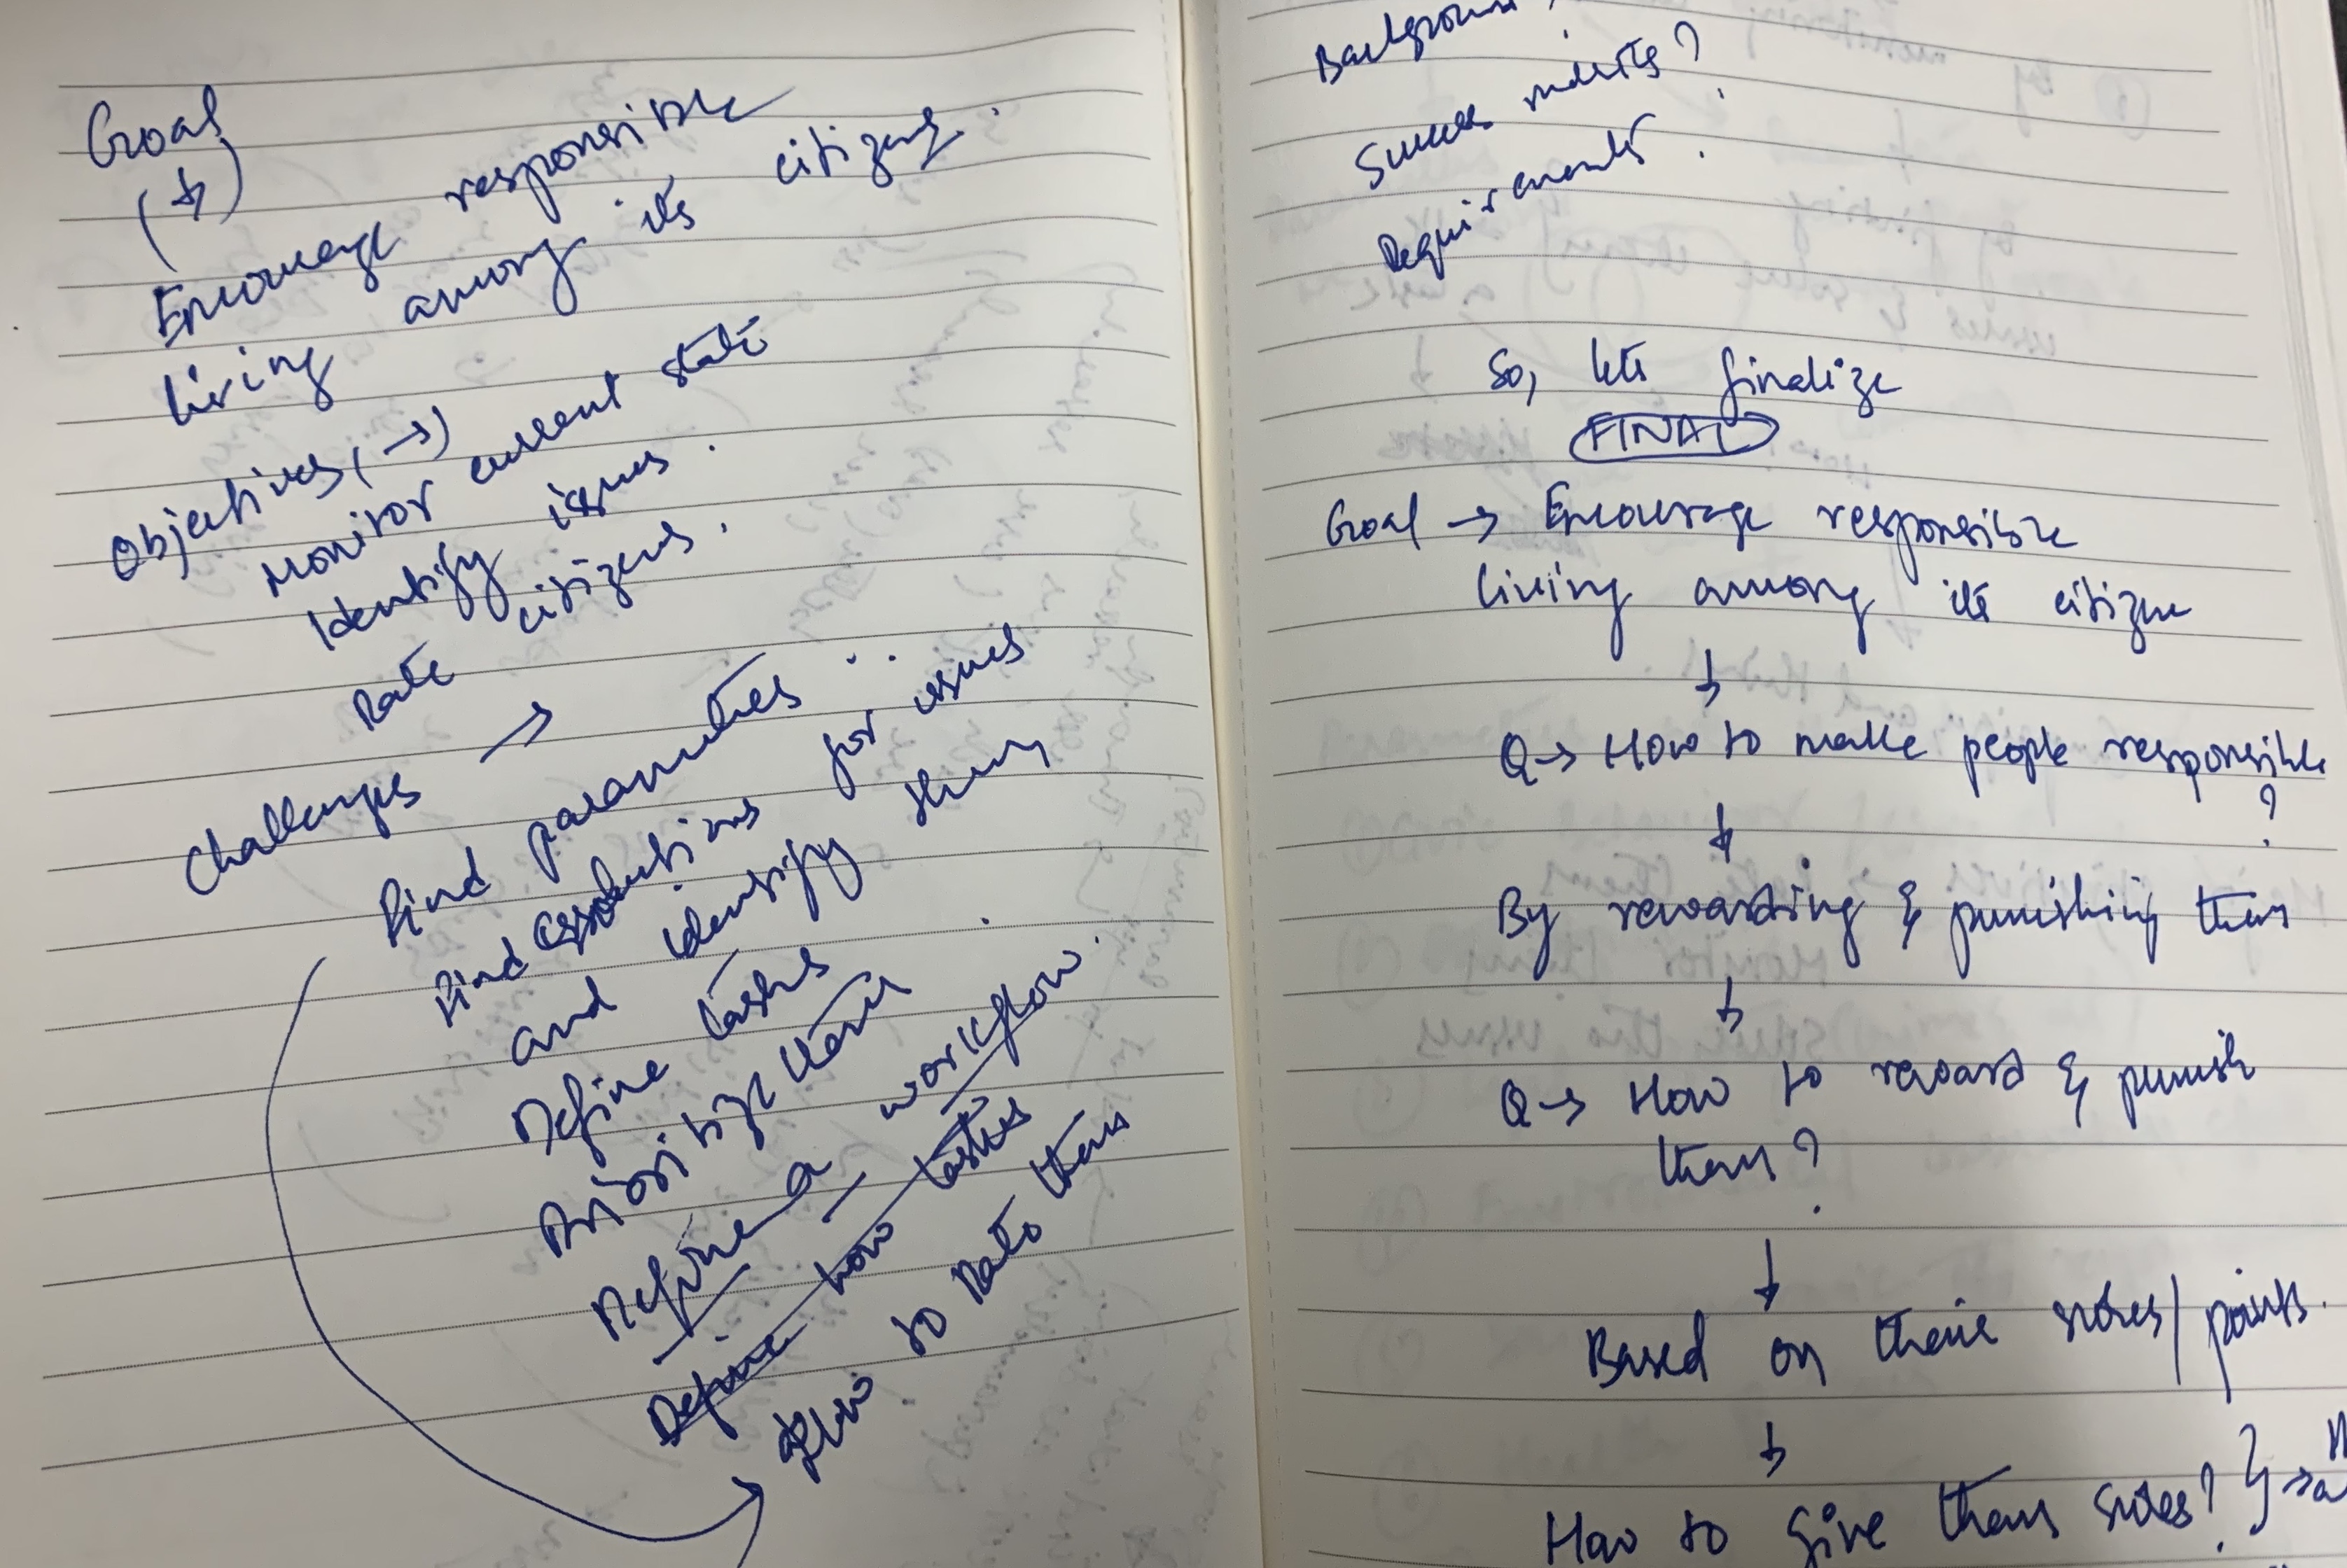 Goal
(↓)
Encourage responsible
living among its citizens.
Objectives, (→)
Monitor current state
Identify issues.
Rate citizens.
Challenges →
Find parameters
Find solutions for issues
and identify them
Define tasks
Prioritize them.
Define a workflow.
Define how tasks
to Rate them
Background
Success metrics?
Requirements.
So, lets finalize
FINAL
Goal → Encourage responsible
living among its citizen
↓
Q→ How to make people responsible
?
↓
By rewarding & punishing them
↓
Q→ How to reward & punish
them?
↓
Based on their scores/points.
↓
How to give them scores? } →